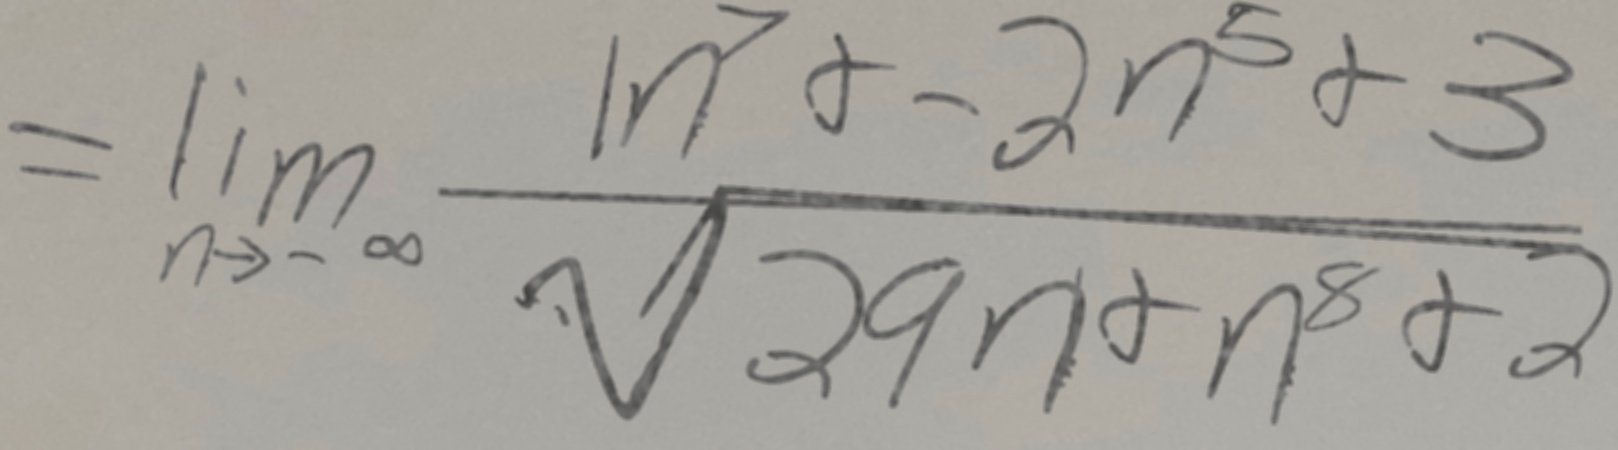 = \lim_{n \to -\infty} \frac{1n^7 + -2n^5 + 3}{\sqrt{29n + n^8 + 2}}